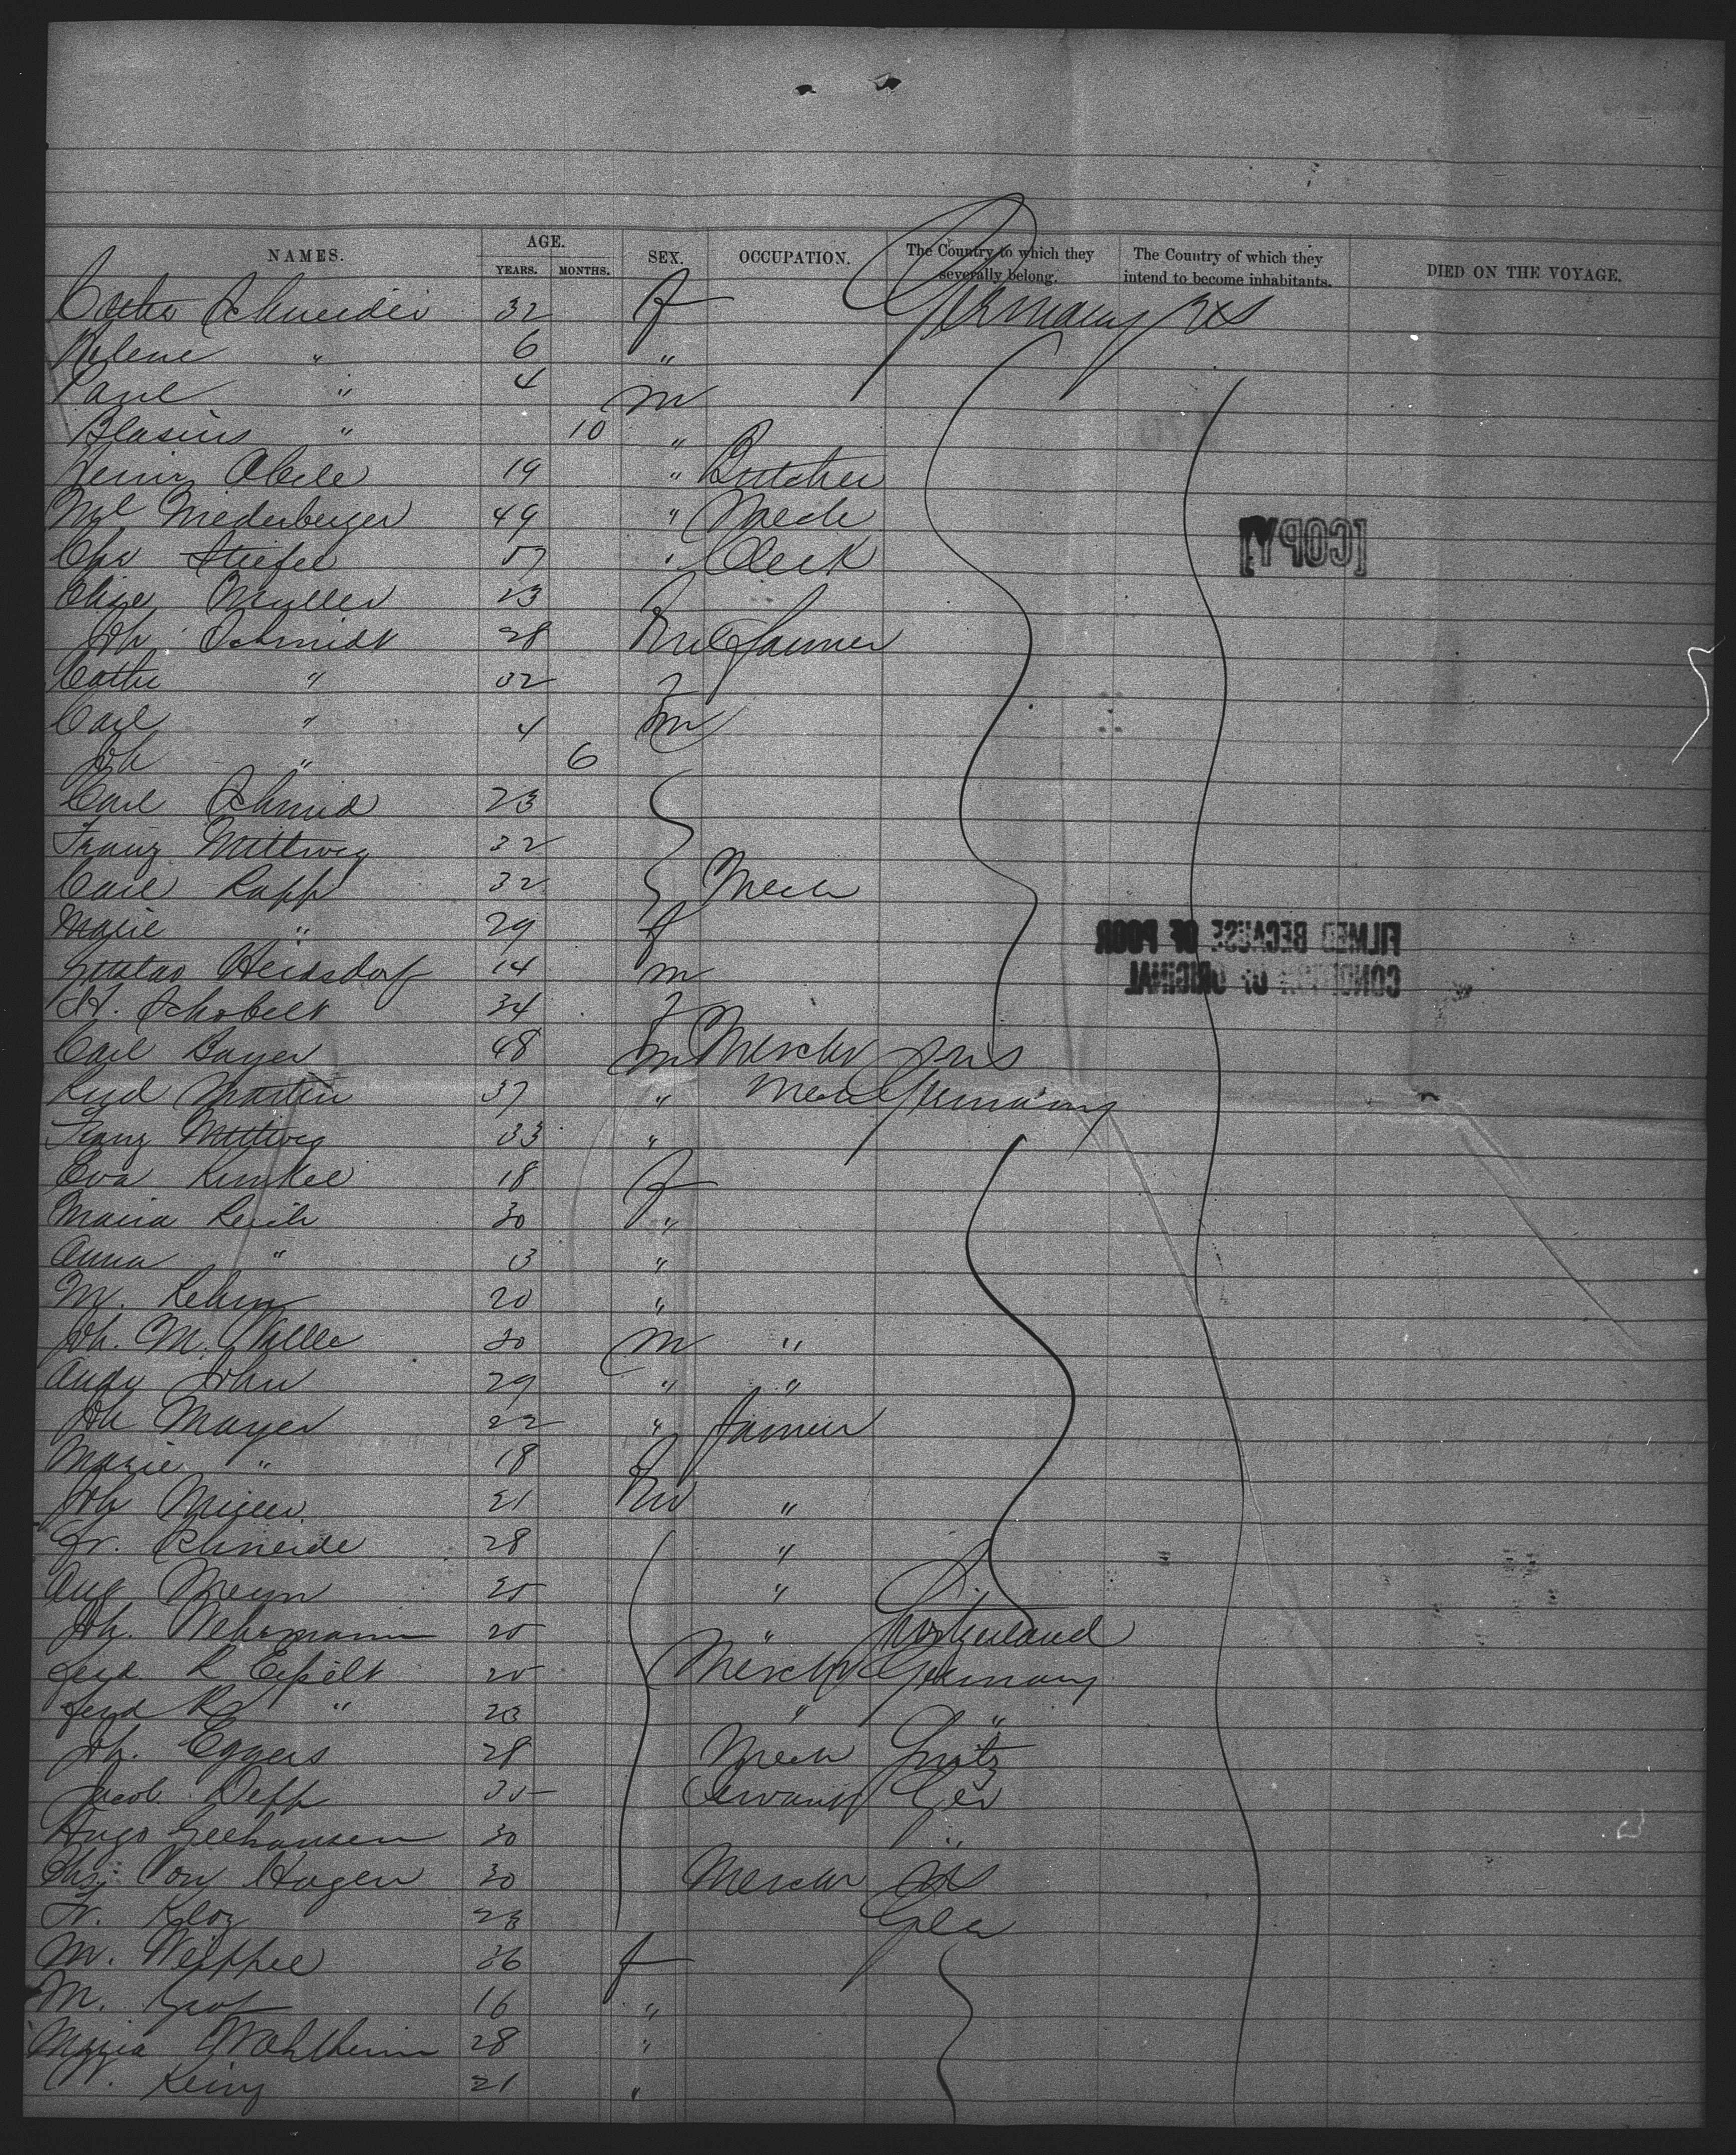 NAMES. AGE. YEARS. MONTHS. SEX. OCCUPATION. The Country to which they severally belong. The Country of which they intend to become inhabitants. DIED ON THE VOYAGE.
Schneider 32 f Germany US
Helene " 6 "
Paul " 4 m
Blasius " 10 "
Henry Abele 19 " Butcher
Niederberger 49 " Mech
Chs Stiefel 57 " Clerk
Elise Muller 23 f
Joh Schmidt 28 m Farmer
Cathe " 32 f
Carl " 4 m
Joh " 6
[COPY]
Carl Schmid 23
Franz Mittweg 32
Carl Rapp 32 Mech
Marie " 29 f
FILMED BECAUSE OF POOR
CONDITION OF ORIGINAL
Gustav Heidsdorf 14 m
H. Schobelt 34 f
Carl Bayer 48 m Mercht US
Rud Martin 37 " Mech Germany
Franz Mittweg 33 "
Eva Kunkel 18 f
Maria 30 "
Anna " 13 "
M. Rehm 20 "
Joh. M. Wille 30 m "
Andr John 29 " "
Joh Mayer 22 " Farmer
Marie " 18 f
Joh Meyer 21 m "
Fr. Schneide 28 "
Aug Meyn 25 "
Joh. Wehrmann 25 " Switzerland
Ferd. R 25 Mercht Germany
Ferd R " 23 " "
Joh. Eggers 28 Mech Switz
Jacob Depp 35 Servant Ger
Hugo Geehausen 30 "
Chs. Von Hagen 30 Mercht US
Fr. Kloz 28 Ger
M. Weippel 36 f
M. Graf 16 "
Maria Wohlheim 28 "
W. 21 "